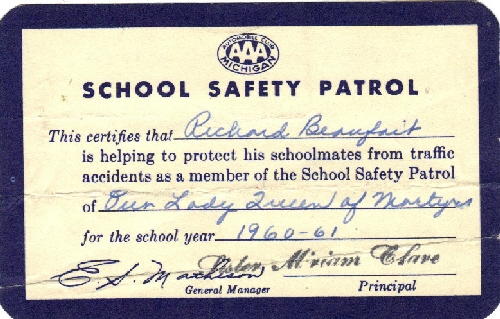 AUTOMOBILE CLUB
AAA
MICHIGAN
SCHOOL SAFETY PATROL
This certifies that Richard Beaufait
is helping to protect his schoolmates from traffic
accidents as a member of the School Safety Patrol
of Our Lady Queen of Martyrs
for the school year 1960-61
E. S. Matheson Sister Miriam Clare
General Manager Principal